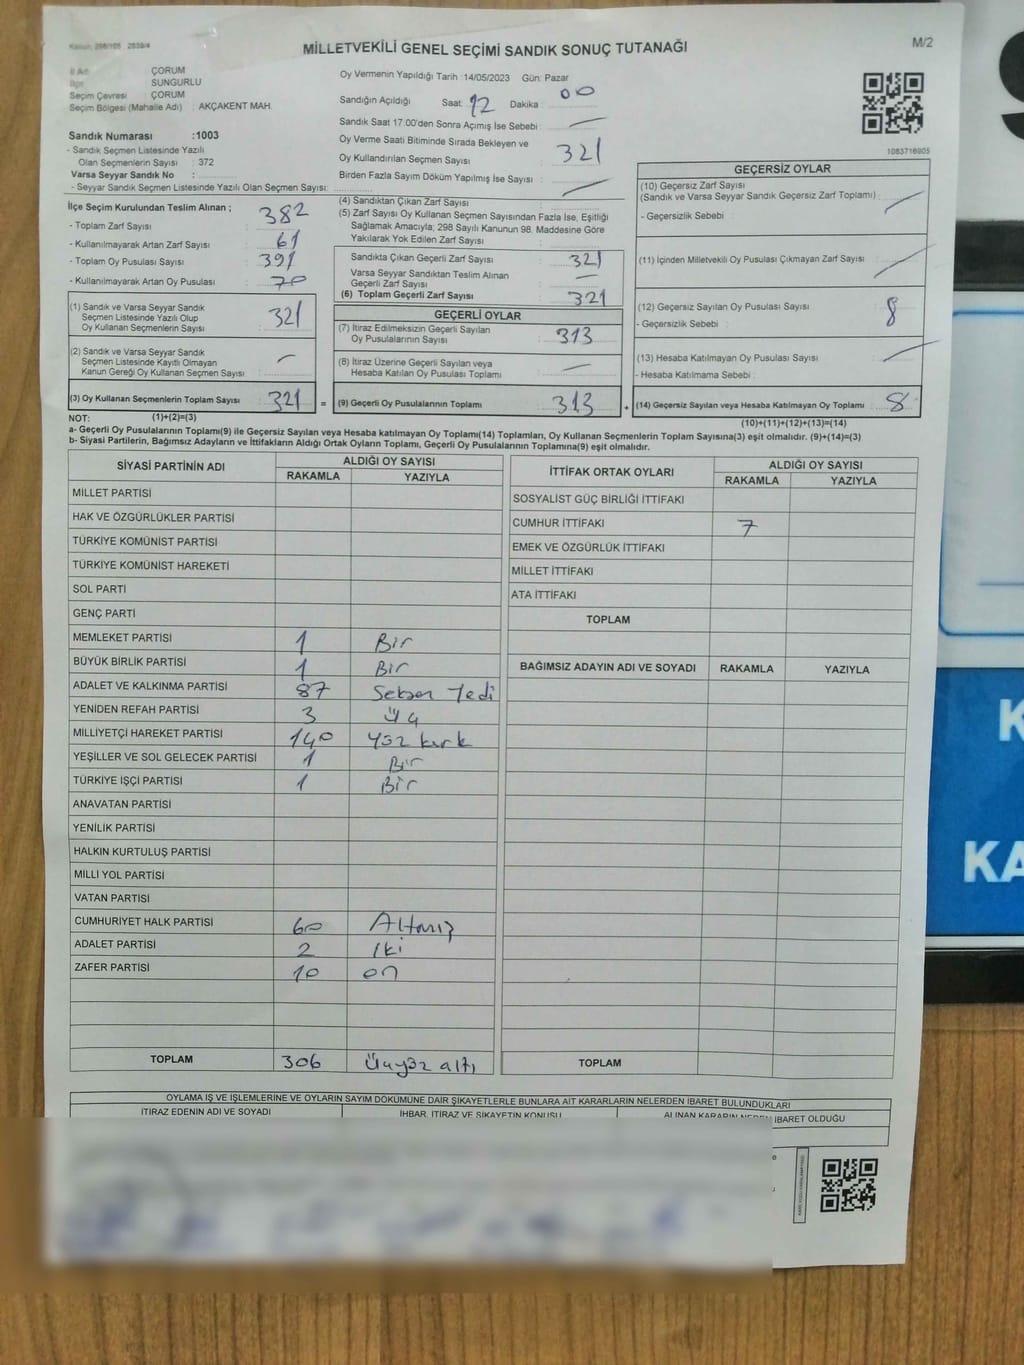 Kanun: 298/105 2839/4
MİLLETVEKİLİ GENEL SEÇİMİ SANDIK SONUÇ TUTANAĞI
M/2
İl Adı ÇORUM
İlçe SUNGURLU
Seçim Çevresi ÇORUM
Seçim Bölgesi (Mahalle Adı) : AKÇAKENT MAH.
Sandık Numarası :1003
- Sandık Seçmen Listesinde Yazılı
Olan Seçmenlerin Sayısı : 372
Varsa Seyyar Sandık No :
- Seyyar Sandık Seçmen Listesinde Yazılı Olan Seçmen Sayısı:
Oy Vermenin Yapıldığı Tarih :14/05/2023 Gün: Pazar
Sandığın Açıldığı Saat: 12 Dakika : 00
Sandık Saat 17:00'den Sonra Açımış İse Sebebi :
Oy Verme Saati Bitiminde Sırada Bekleyen ve
Oy Kullandırılan Seçmen Sayısı : 321
Birden Fazla Sayım Döküm Yapılmış İse Sayısı :
1083716905
İlçe Seçim Kurulundan Teslim Alınan ;
- Toplam Zarf Sayısı : 382
- Kullanılmayarak Artan Zarf Sayısı : 61
- Toplam Oy Pusulası Sayısı : 391
- Kullanılmayarak Artan Oy Pusulası : 70
(1) Sandık ve Varsa Seyyar Sandık
Seçmen Listesinde Yazılı Olup
Oy Kullanan Seçmenlerin Sayısı : 321
(2) Sandık ve Varsa Seyyar Sandık
Seçmen Listesinde Kayıtlı Olmayan
Kanun Gereği Oy Kullanan Seçmen Sayısı :
(3) Oy Kullanan Seçmenlerin Toplam Sayısı : 321 =
(1)+(2)=(3)
(4) Sandıktan Çıkan Zarf Sayısı :
(5) Zarf Sayısı Oy Kullanan Seçmen Sayısından Fazla İse, Eşitliği
Sağlamak Amacıyla; 298 Sayılı Kanunun 98. Maddesine Göre
Yakılarak Yok Edilen Zarf Sayısı :
Sandıkta Çıkan Geçerli Zarf Sayısı : 321
Varsa Seyyar Sandıktan Teslim Alınan
Geçerli Zarf Sayısı :
(6) Toplam Geçerli Zarf Sayısı : 321
GEÇERLİ OYLAR
(7) İtiraz Edilmeksizin Geçerli Sayılan
Oy Pusulalarının Sayısı : 313
(8) İtiraz Üzerine Geçerli Sayılan veya
Hesaba Katılan Oy Pusulası Toplamı :
(9) Geçerli Oy Pusulalarının Toplamı : 313 +
GEÇERSİZ OYLAR
(10) Geçersiz Zarf Sayısı
(Sandık ve Varsa Seyyar Sandık Geçersiz Zarf Toplamı) :
- Geçersizlik Sebebi :
(11) İçinden Milletvekili Oy Pusulası Çıkmayan Zarf Sayısı :
(12) Geçersiz Sayılan Oy Pusulası Sayısı : 8
- Geçersizlik Sebebi :
(13) Hesaba Katılmayan Oy Pusulası Sayısı :
- Hesaba Katılmama Sebebi :
(14) Geçersiz Sayılan veya Hesaba Katılmayan Oy Toplamı : 8
(10)+(11)+(12)+(13)=(14)
NOT:
a- Geçerli Oy Pusulalarının Toplamı(9) ile Geçersiz Sayılan veya Hesaba katılmayan Oy Toplamı(14) Toplamları, Oy Kullanan Seçmenlerin Toplam Sayısına(3) eşit olmalıdır. (9)+(14)=(3)
b- Siyasi Partilerin, Bağımsız Adayların ve İttifakların Aldığı Ortak Oyların Toplamı, Geçerli Oy Pusulalarının Toplamına(9) eşit olmalıdır.
SİYASİ PARTİNİN ADI ALDIĞI OY SAYISI
RAKAMLA YAZIYLA
MİLLET PARTİSİ
HAK VE ÖZGÜRLÜKLER PARTİSİ
TÜRKİYE KOMÜNİST PARTİSİ
TÜRKİYE KOMÜNİST HAREKETİ
SOL PARTİ
GENÇ PARTİ
MEMLEKET PARTİSİ 1 Bir
BÜYÜK BİRLİK PARTİSİ 1 Bir
ADALET VE KALKINMA PARTİSİ 87 Seksen Yedi
YENİDEN REFAH PARTİSİ 3 Üç
MİLLİYETÇİ HAREKET PARTİSİ 140 Yüz kırk
YEŞİLLER VE SOL GELECEK PARTİSİ 1 Bir
TÜRKİYE İŞÇİ PARTİSİ 1 Bir
ANAVATAN PARTİSİ
YENİLİK PARTİSİ
HALKIN KURTULUŞ PARTİSİ
MİLLİ YOL PARTİSİ
VATAN PARTİSİ
CUMHURİYET HALK PARTİSİ 60 Altmış
ADALET PARTİSİ 2 İki
ZAFER PARTİSİ 10 on
TOPLAM 306 Üçyüz altı
İTTİFAK ORTAK OYLARI ALDIĞI OY SAYISI
RAKAMLA YAZIYLA
SOSYALİST GÜÇ BİRLİĞİ İTTİFAKI
CUMHUR İTTİFAKI 7
EMEK VE ÖZGÜRLÜK İTTİFAKI
MİLLET İTTİFAKI
ATA İTTİFAKI
TOPLAM
BAĞIMSIZ ADAYIN ADI VE SOYADI RAKAMLA YAZIYLA
TOPLAM
OYLAMA İŞ VE İŞLEMLERİNE VE OYLARIN SAYIM DÖKÜMÜNE DAİR ŞİKAYETLERLE BUNLARA AİT KARARLARIN NELERDEN İBARET BULUNDUKLARI
İTİRAZ EDENİN ADI VE SOYADI İHBAR, İTİRAZ VE ŞİKAYETİN KONUSU ALINAN KARARIN NEDEN İBARET OLDUĞU
K
KA